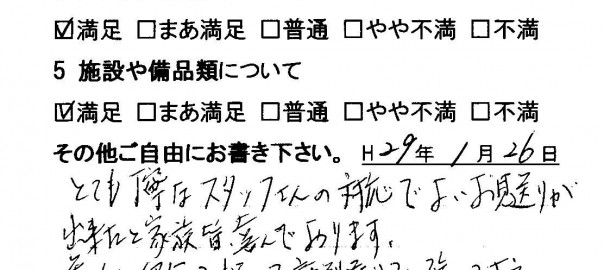 ☑満足 □まあ満足 □普通 □やや不満 □不満
5 施設や備品類について
☑満足 □まあ満足 □普通 □やや不満 □不満
その他ご自由にお書き下さい。 H29年 1月26日
とても丁寧なスタッフさんの対応でよいお見送りが
出来たと家族皆、喜んでおります。